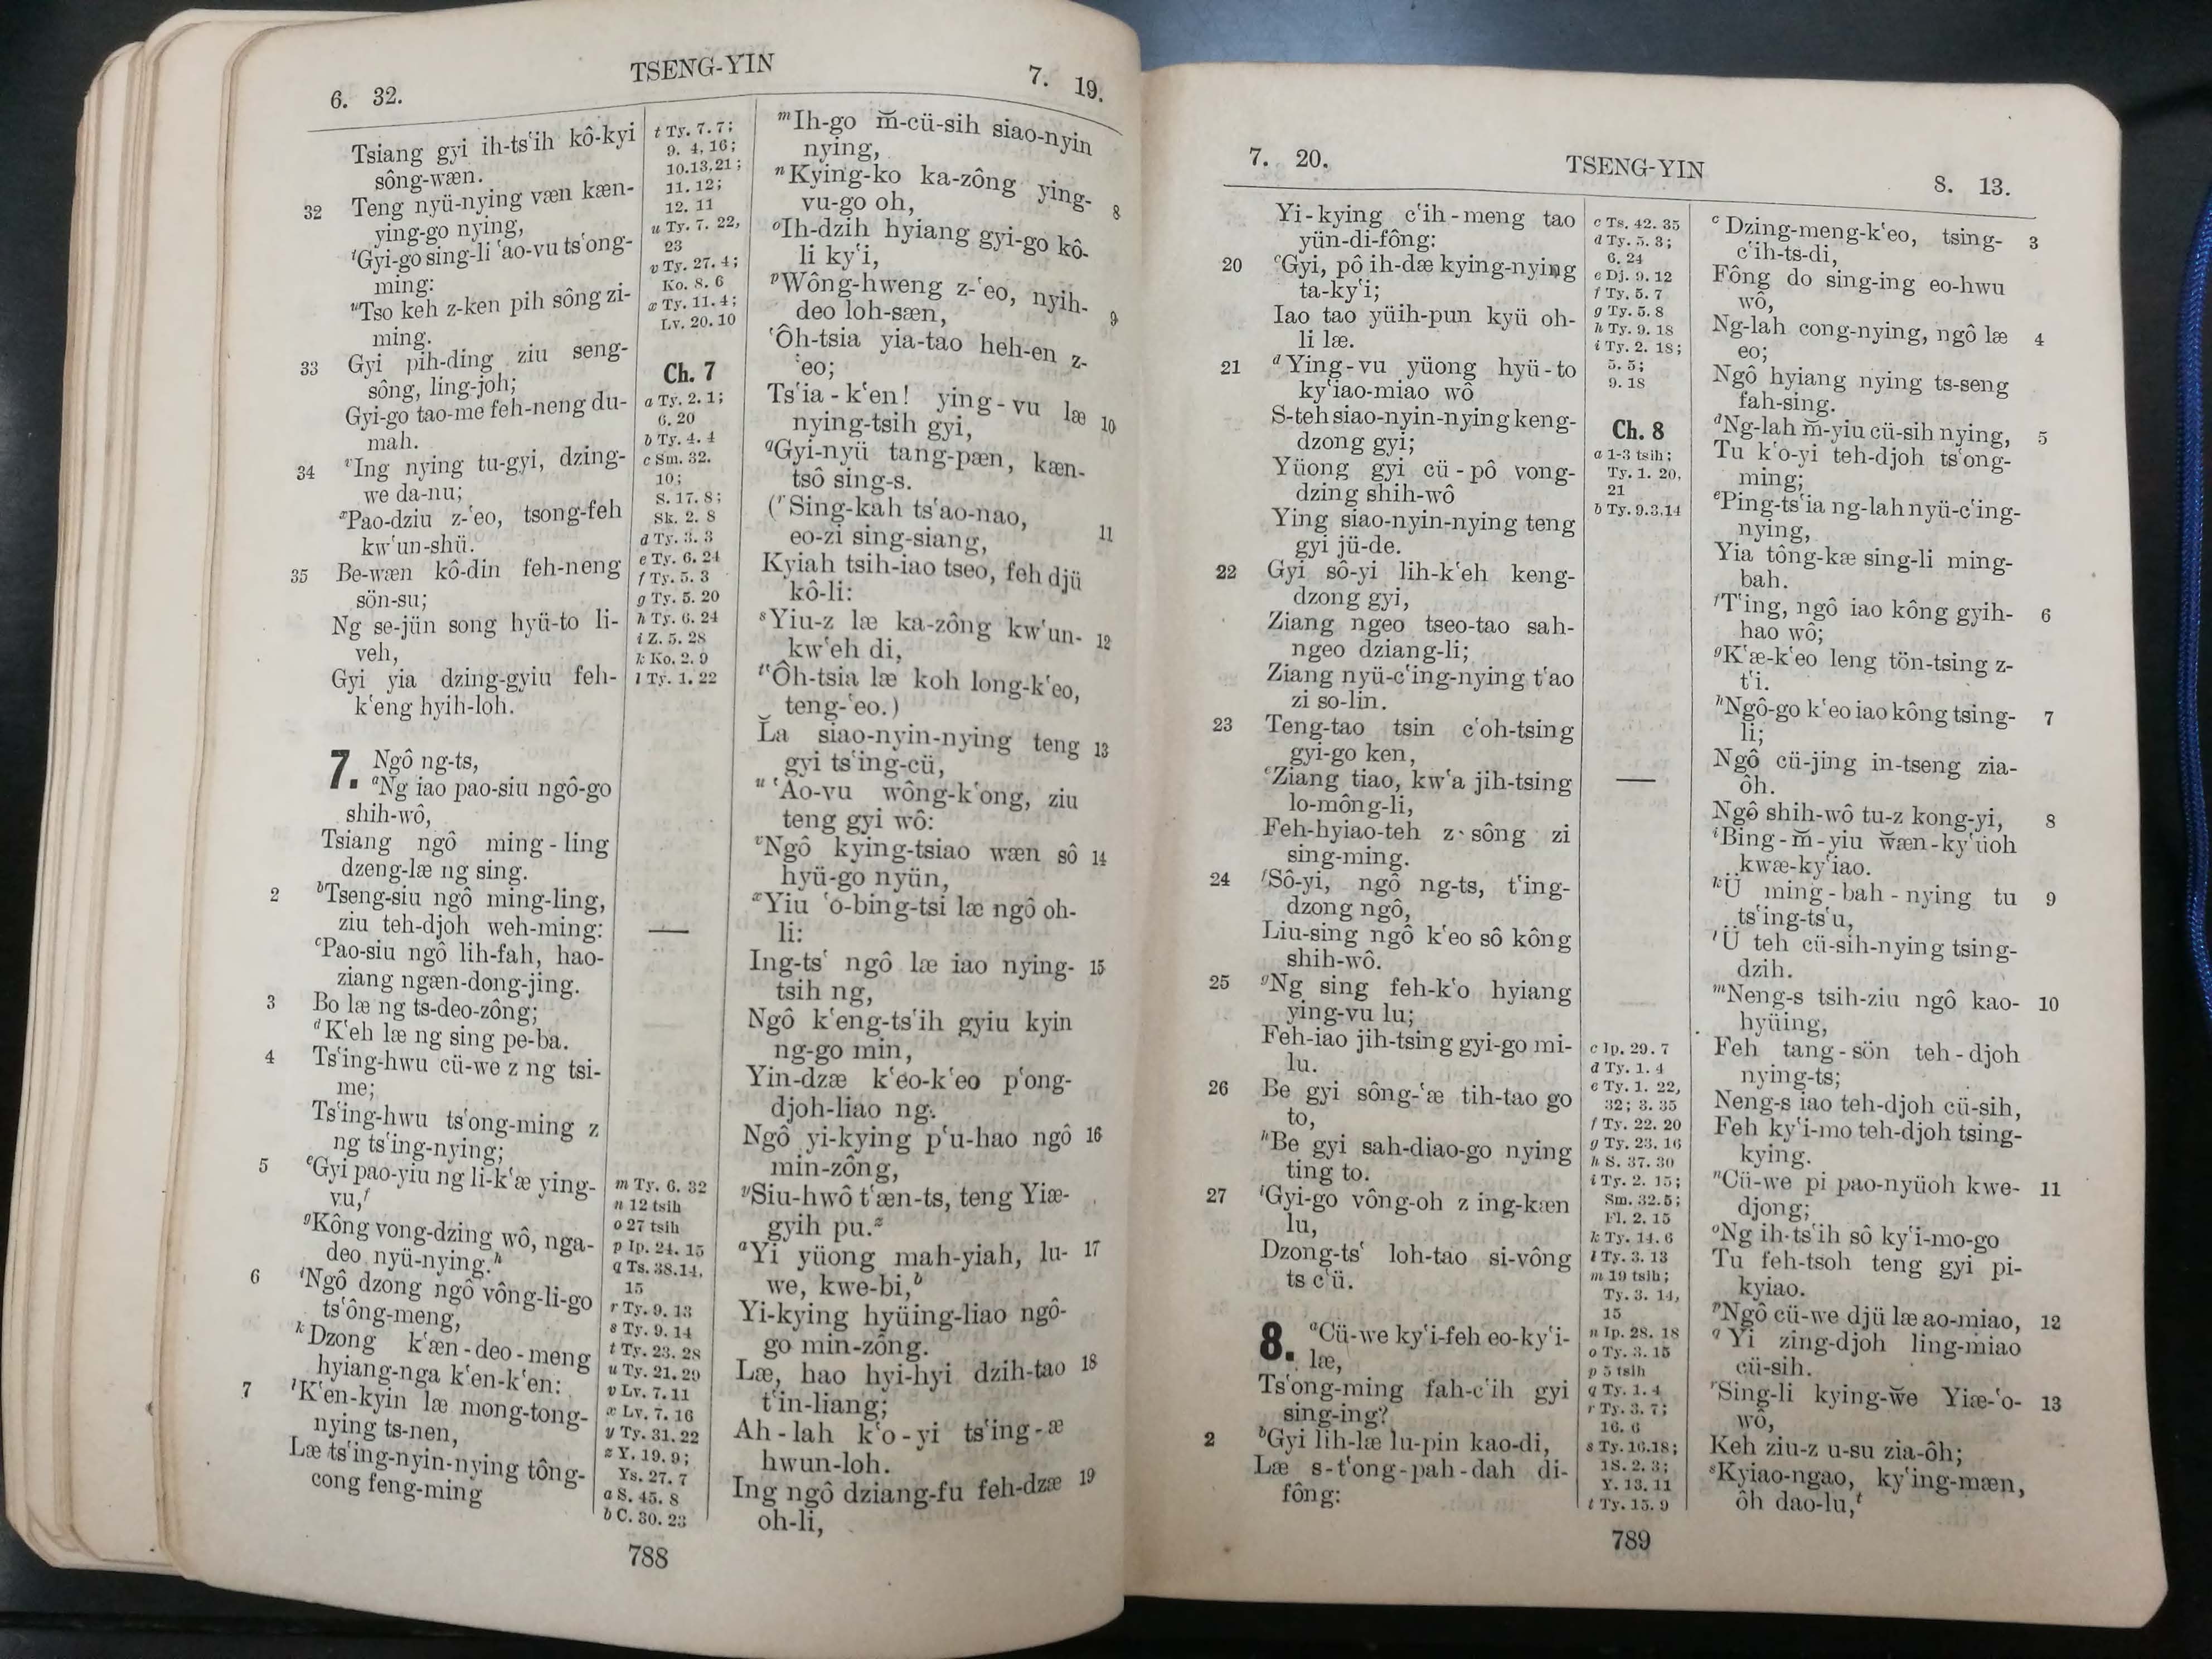 6. 32.
TSENG-YIN
7. 19.
Tsiang gyi ih-tsʻih kô-kyi
sông-wæn.
32 Teng nyü-nying væn kæn-
ying-go nying,
tGyi-go sing-li ʻao-vu tsʻong-
ming:
uTso keh z-ken pih sông zi-
ming.
33 Gyi pih-ding ziu seng-
sông, ling-joh;
Gyi-go tao-me feh-neng du-
mah.
34 vIng nying tu-gyi, dzing-
we da-nu;
xPao-dziu z-ʻeo, tsong-feh
kwʻun-shü.
35 Be-wæn kô-din feh-neng
sön-su;
Ng se-jün song hyü-to li-
veh,
Gyi yia dzing-gyiu feh-
kʻeng hyih-loh.
7. Ngô ng-ts,
aNg iao pao-siu ngô-go
shih-wô,
Tsiang ngô ming-ling
dzeng-læ ng sing.
2 bTseng-siu ngô ming-ling,
ziu teh-djoh weh-ming:
cPao-siu ngô lih-fah, hao-
ziang ngæn-dong-jing.
3 Bo læ ng ts-deo-zông;
dKʻeh læ ng sing pe-ba.
4 Tsʻing-hwu cü-we z ng tsi-
me;
Tsʻing-hwu tsʻong-ming z
ng tsʻing-nying;
5 eGyi pao-yiu ng li-kʻæ ying-
vu,f
gKông vong-dzing wô, nga-
deo nyü-nying.h
6 iNgô dzong ngô vông-li-go
tsʻông-meng,
kDzong kʻæn-deo-meng
hyiang-nga kʻen-kʻen:
7 lKʻen-kyin læ mong-tong-
nying ts-nen,
Læ tsʻing-nyin-nying tông-
cong feng-ming
t Ty. 7. 7;
9. 4, 16;
10.13,21;
11. 12;
12. 11
u Ty. 7. 22,
23
v Ty. 27. 4;
Ko. 8. 6
x Ty. 11. 4;
Lv. 20. 10
Ch. 7
a Ty. 2. 1;
6. 20
b Ty. 4. 4
c Sm. 32.
10;
S. 17. 8;
Sk. 2. 8
d Ty. 3. 3
e Ty. 6. 24
f Ty. 5. 3
g Ty. 5. 20
h Ty. 6. 24
i Z. 5. 28
k Ko. 2. 9
l Ty. 1. 22
m Ty. 6. 32
n 12 tsih
o 27 tsih
p Ip. 24. 15
q Ts. 38.14,
15
r Ty. 9. 13
s Ty. 9. 14
t Ty. 23. 28
u Ty. 21. 29
v Lv. 7. 11
x Lv. 7. 16
y Ty. 31. 22
z Y. 19. 9;
Ys. 27. 7
a S. 45. 8
b C. 30. 23
mIh-go m̆-cü-sih siao-nyin
nying,
nKying-ko ka-zông ying- 8
vu-go oh,
oIh-dzih hyiang gyi-go kô-
li kyʻi,
pWông-hweng z-ʻeo, nyih- 9
deo loh-sæn,
ʻÔh-tsia yia-tao heh-en z-
ʻeo;
Tsʻia-kʻen! ying-vu læ 10
nying-tsih gyi,
qGyi-nyü tang-pæn, kæn-
tsô sing-s.
(rSing-kah tsʻao-nao, 11
eo-zi sing-siang,
Kyiah tsih-iao tseo, feh djü
kô-li:
sYiu-z læ ka-zông kwʻun- 12
kwʻeh di,
tʻÔh-tsia læ koh long-kʻeo,
teng-ʻeo.)
L̆a siao-nyin-nying teng 13
gyi tsʻing-cü,
uʻAo-vu wông-kʻong, ziu
teng gyi wô:
vNgô kying-tsiao wæn sô 14
hyü-go nyün,
xYiu ʻo-bing-tsi læ ngô oh-
li:
Ing-tsʻ ngô læ iao nying- 15
tsih ng,
Ngô kʻeng-tsʻih gyiu kyin
ng-go min,
Yin-dzæ kʻeo-kʻeo pʻong-
djoh-liao ng.
Ngô yi-kying pʻu-hao ngô 16
min-zông,
ySiu-hwô tʻæn-ts, teng Yiæ-
gyih pu.z
aYi yüong mah-yiah, lu- 17
we, kwe-bi,b
Yi-kying hyüing-liao ngô-
go min-zông.
Læ, hao hyi-hyi dzih-tao 18
tʻin-liang;
Ah-lah kʻo-yi tsʻing-æ
hwun-loh.
Ing ngô dziang-fu feh-dzæ 19
oh-li,
788
7. 20.
TSENG-YIN
8. 13.
Yi-kying cʻih-meng tao
yün-di-fông:
20 cGyi, pô ih-dæ kying-nying
ta-kyʻi;
Iao tao yüih-pun kyü oh-
li læ.
21 dYing-vu yüong hyü-to
kyʻiao-miao wô
S-teh siao-nyin-nying keng-
dzong gyi;
Yüong gyi cü-pô vong-
dzing shih-wô
Ying siao-nyin-nying teng
gyi jü-de.
22 Gyi sô-yi lih-kʻeh keng-
dzong gyi,
Ziang ngeo tseo-tao sah-
ngeo dziang-li;
Ziang nyü-cʻing-nying tʻao
zi so-lin.
23 Teng-tao tsin cʻoh-tsing
gyi-go ken,
eZiang tiao, kwʻa jih-tsing
lo-mông-li,
Feh-hyiao-teh z-sông zi
sing-ming.
24 fSô-yi, ngô ng-ts, tʻing-
dzong ngô,
Liu-sing ngô kʻeo sô kông
shih-wô.
25 gNg sing feh-kʻo hyiang
ying-vu lu;
Feh-iao jih-tsing gyi-go mi-
lu.
26 Be gyi sông-ʻæ tih-tao go
to,
hBe gyi sah-diao-go nying
ting to.
27 iGyi-go vông-oh z ing-kæn
lu,
Dzong-tsʻ loh-tao si-vông
ts cʻü.
8. aCü-we kyʻi-feh eo-kyʻi-
læ,
Tsʻong-ming fah-cʻih gyi
sing-ing?
2 bGyi lih-læ lu-pin kao-di,
Læ s-tʻong-pah-dah di-
fông:
c Ts. 42. 35
d Ty. 5. 3;
6. 24
e Dj. 9. 12
f Ty. 5. 7
g Ty. 5. 8
h Ty. 9. 18
i Ty. 2. 18;
5. 5;
9. 18
Ch. 8
a 1-3 tsih;
Ty. 1. 20,
21
b Ty. 9.3,14
c Ip. 29. 7
d Ty. 1. 4
e Ty. 1. 22,
32; 3. 35
f Ty. 22. 20
g Ty. 23. 16
h S. 37. 30
i Ty. 2. 15;
Sm. 32.5;
Fl. 2. 15
k Ty. 14. 6
l Ty. 3. 13
m 19 tsih;
Ty. 3. 14,
15
n Ip. 28. 18
o Ty. 3. 15
p 5 tsih
q Ty. 1. 4
r Ty. 3. 7;
16. 6
s Ty. 16.18;
1S. 2. 3;
Y. 13. 11
t Ty. 15. 9
cDzing-meng-kʻeo, tsing- 3
cʻih-ts-di,
Fông do sing-ing eo-hwu
wô,
Ng-lah cong-nying, ngô læ 4
eo;
Ngô hyiang nying ts-seng
fah-sing.
dNg-lah m̆-yiu cü-sih nying, 5
Tu kʻo-yi teh-djoh tsʻong-
ming;
ePing-tsʻia ng-lah nyü-cʻing-
nying,
Yia tông-kæ sing-li ming-
bah.
fTʻing, ngô iao kông gyih- 6
hao wô;
gKʻæ-kʻeo leng tön-tsing z-
tʻi.
hNgô-go kʻeo iao kông tsing- 7
li;
Ngô cü-jing in-tseng zia-
ôh.
Ngô shih-wô tu-z kong-yi, 8
iBing-m̆-yiu w̆æn-kyʻüoh
kwæ-kyʻiao.
kÜ ming-bah-nying tu 9
tsʻing-tsʻu,
lÜ teh cü-sih-nying tsing-
dzih.
mNeng-s tsih-ziu ngô kao- 10
hyüing,
Feh tang-sön teh-djoh
nying-ts;
Neng-s iao teh-djoh cü-sih,
Feh kyʻi-mo teh-djoh tsing-
kying.
nCü-we pi pao-nyüoh kwe- 11
djong;
oNg ih-tsʻih sô kyʻi-mo-go
Tu feh-tsoh teng gyi pi-
kyiao.
pNgô cü-we djü læ ao-miao, 12
qYi zing-djoh ling-miao
cü-sih.
rSing-li kying-w̆e Yiæ-ʻo- 13
wô,
Keh ziu-z u-su zia-ôh;
sKyiao-ngao, kyʻing-mæn,
ôh dao-lu,t
789